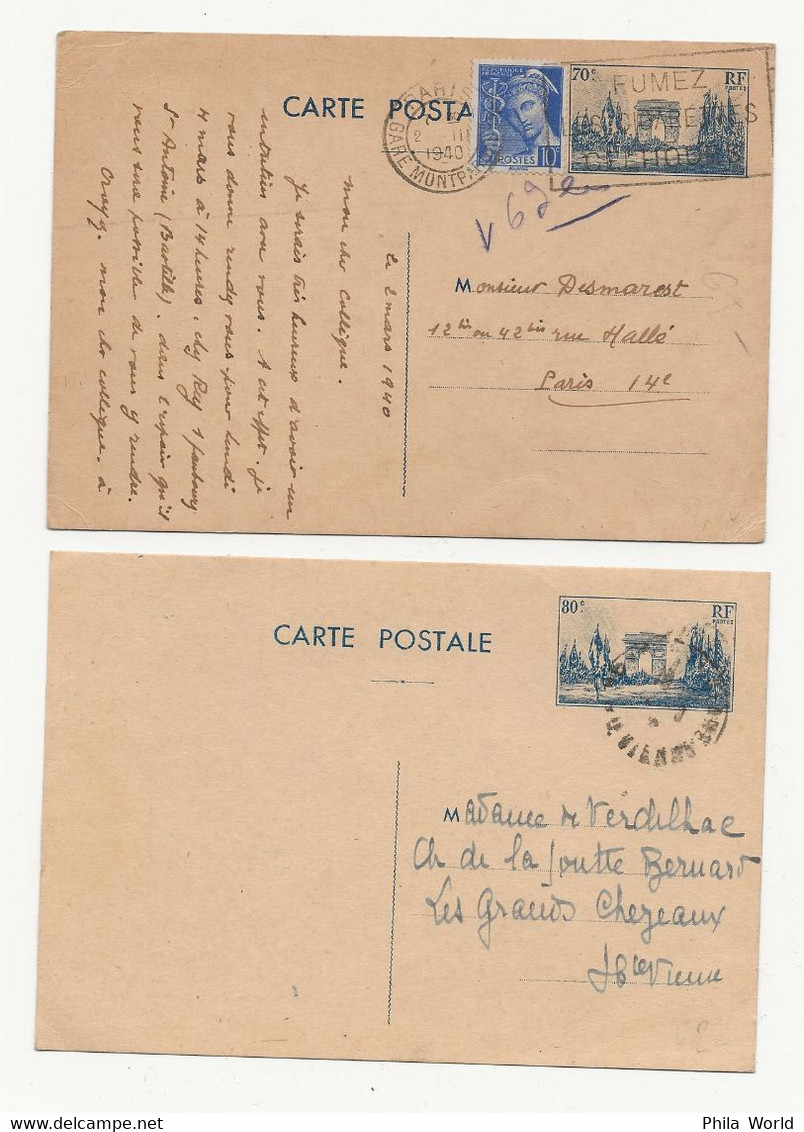 CARTE POSTALE
PARIS
GARE MONTPARNASSE
2 III
1940
RÉPUBLIQUE
FRANÇAISE
POSTES 10c
70c
RF
POSTES
FUMEZ
LES CIGARETTES
CELTIQUES
le 2 mars 1940
mon cher collègue.
Je serais très heureux d'avoir un
entretien avec vous. A cet effet, je
vous donne rendez vous pour lundi
4 mars à 14 heures, chez Rey 1 faubourg
St Antoine (Bastille). dans l'espoir qu'il
vous sera possible de vous y rendre.
Croyez, mon cher collègue, à
Monsieur Desmarest
12 bis ou 42 bis rue Hallé
Paris 14e
CARTE POSTALE
80c
RF
POSTES
Madame de Verdilhac
Ch de la Goutte Bernard
Les Grands Chezeaux
Hte Vienne
Phila World